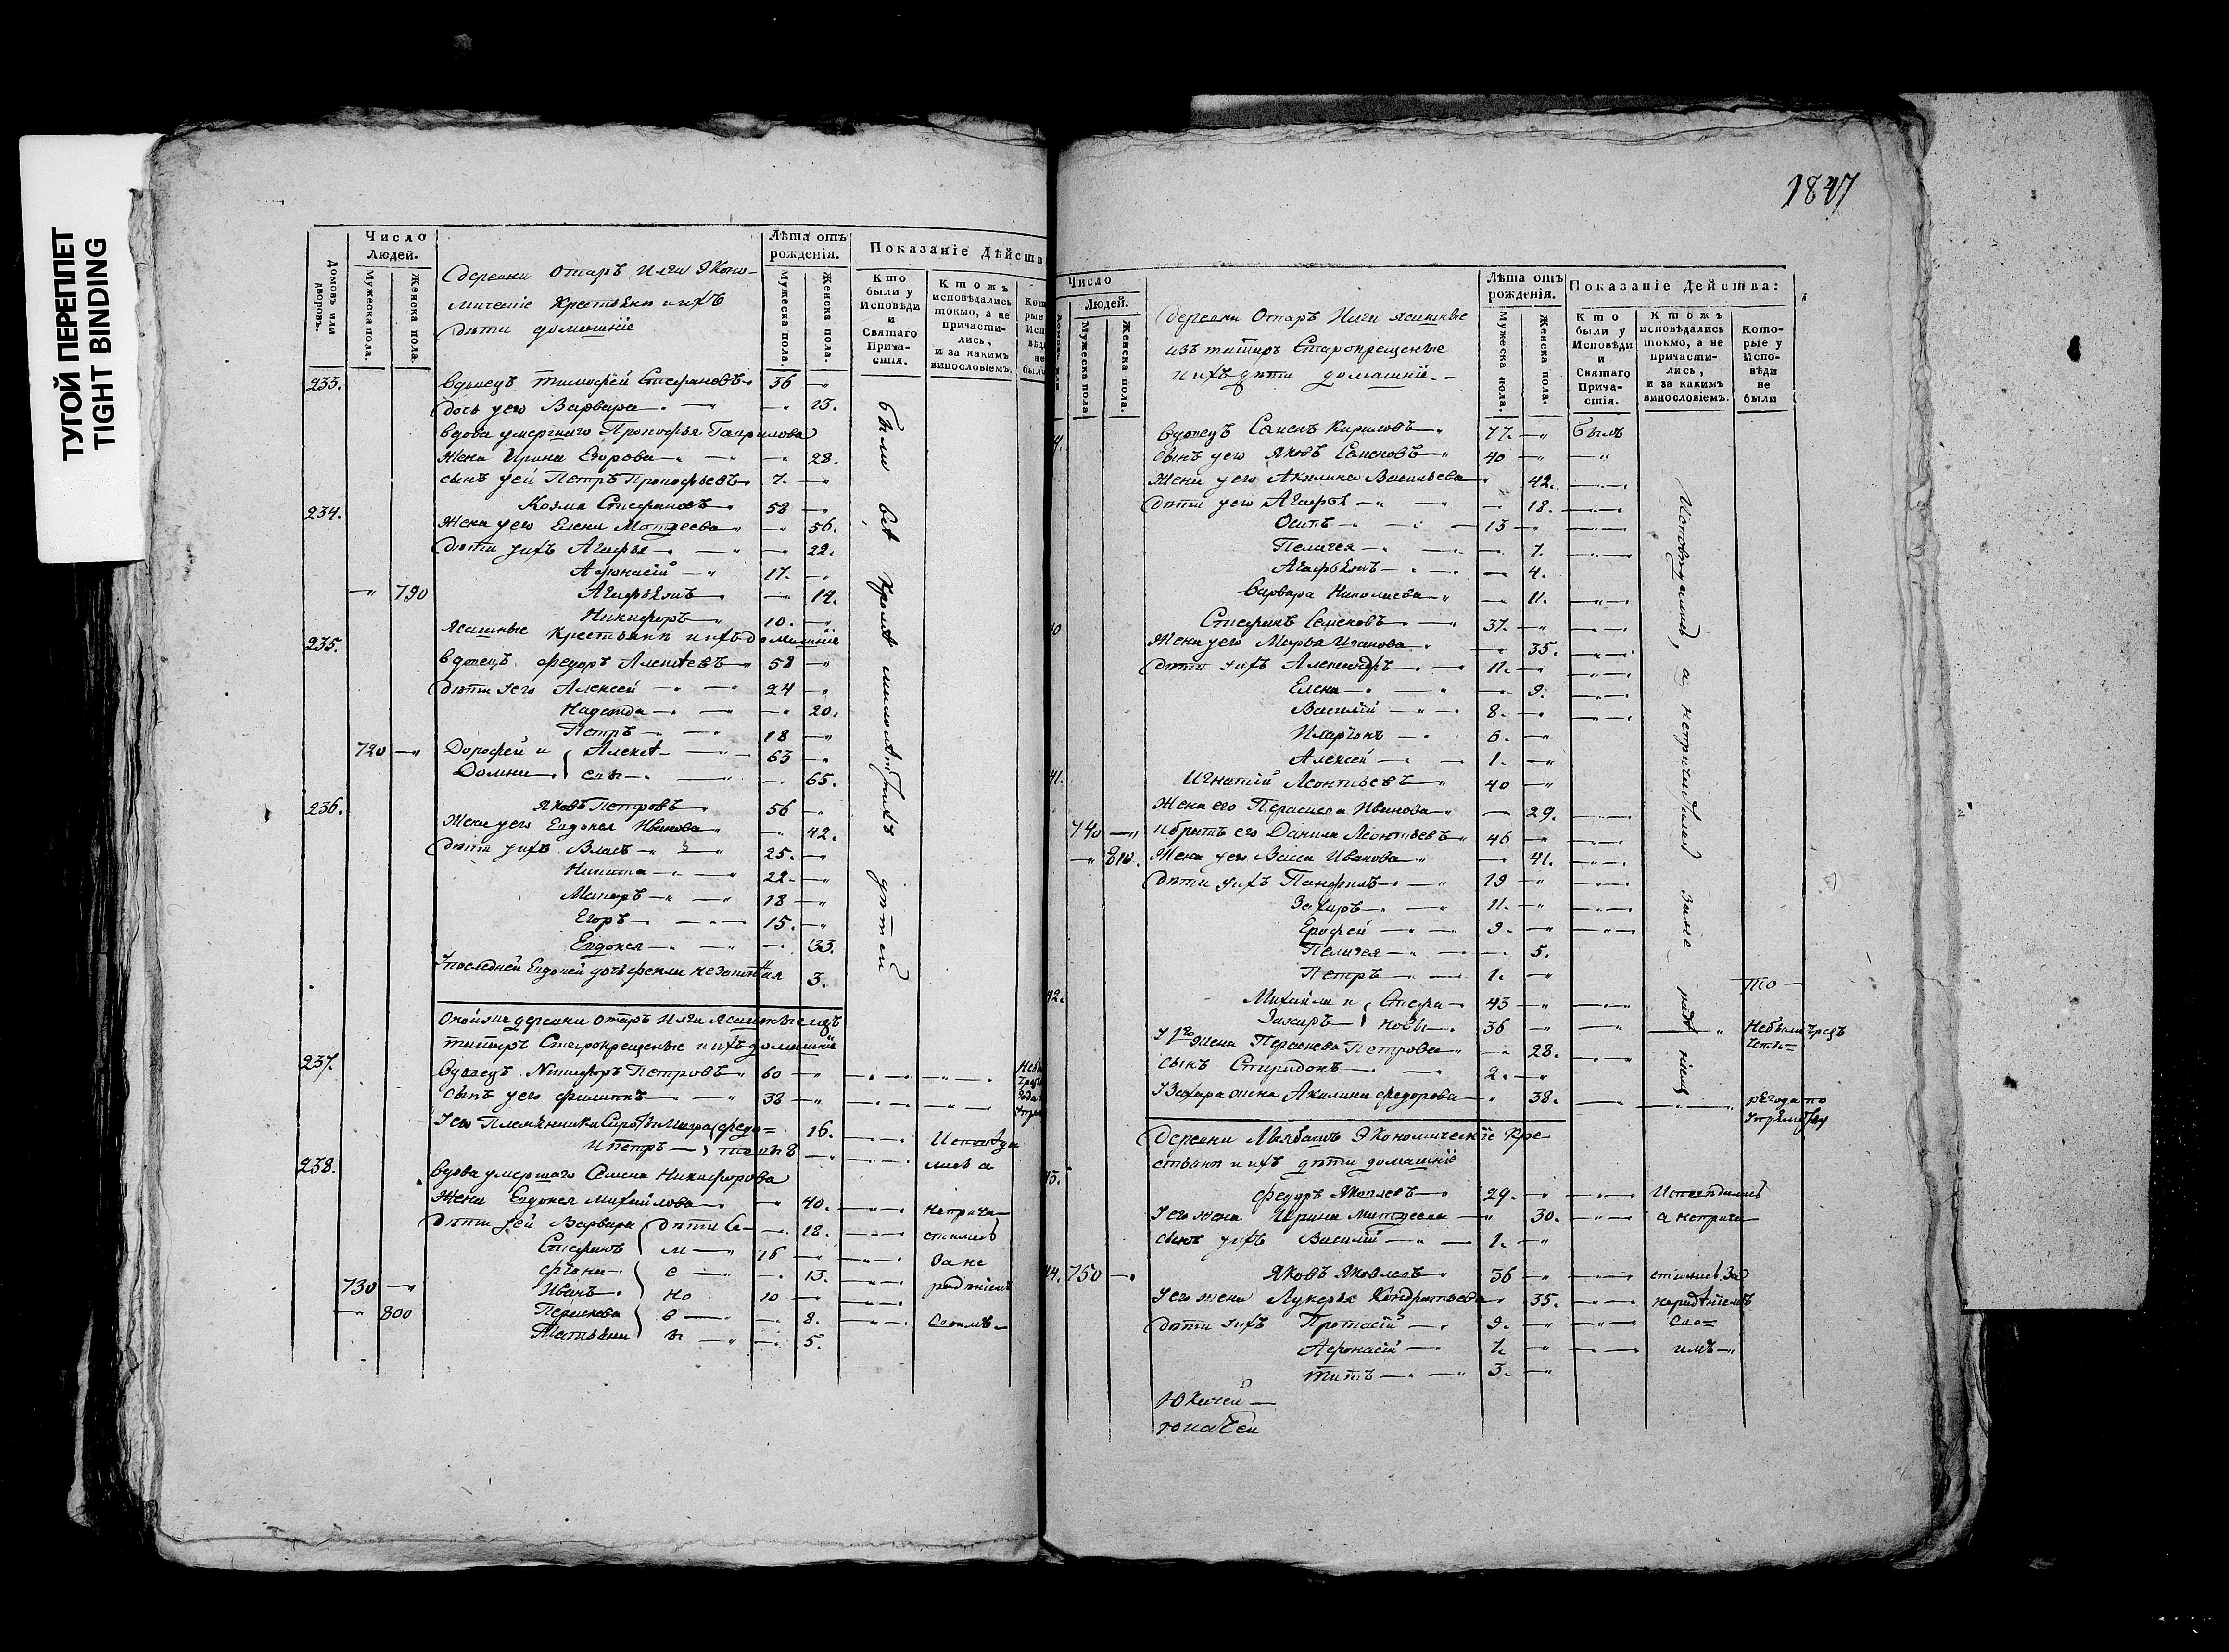 ТУГОЙ ПЕРЕПЛЕТ
TIGHT BINDING
Домовъ или дворовъ.
Число
Людей.
Мужеска пола.
Женска пола.
Деревни Отаръ Илги Эконо-
мическіе Крестьяни и ихъ
дѣти домашніе
Лѣта отъ
рожденія.
Мужеска пола.
Женска пола.
Показаніе Дѣйств
Кто
были у
Исповѣди
и
Святаго
Прича-
стія.
Ктожъ
исповѣдались
токмо, а не
причасти-
лись,
и за какимъ
винословіемъ.
233. вдовецъ Тимофей Стефановъ 36
дочь у его Варвара 13.
вдова умершаго Прокофья Гаврилова
жена Ирина Егорова 28.
сынъ у ей Петръ Прокофьевъ 7.
234. Козма Стефановъ 58
жена у его Елена Матвеева 56.
дѣти у ихъ Агафья 22.
Афонасій 17.
790 14.
Никифоръ 10.
Ясашные Крестьяни и ихъ домашніе
235. вдовецъ Федоръ Алексѣевъ 58
дѣти у его Алексей 24
Надежда 20.
Петръ 18
720 Дорофей и Алексѣ 63
Домни евы 65.
236. Яковъ Петровъ 56
жена у его Евдокея Иванова 42.
дѣти у ихъ Власъ 25.
Никита 22
Макаръ 18
Егоръ 15.
Евдокея 33.
у последней Евдокеи дочь Фекла незаконная 3.
были всѣ кромѣ малолѣтнихъ дѣтей
Оной же деревни Отаръ Илги Ясашные изъ
татаръ Старокрещеные и ихъ домашніе
237. вдовецъ Никифоръ Петровъ 60
сынъ у его Филипъ 38
у его Племянники Сироты 16.
и Петръ
238. вдова умершаго Семена Никифорова
жена Евдокея Михайлова 40.
дѣти у ей Варвара дѣти Се- 18.
Стефанъ м 16
е 13.
730 Иванъ но 10
800 Парасковья в 8.
Татьяна ы 5.
Исповѣда
лись а
неприча
стились
За не
радѣніемъ
своимъ
1847
Число
Людей.
Мужеска пола
Женска пола.
Деревни Отаръ Илги Ясашные
изъ татаръ Старокрещеные
и ихъ дѣти домашніе.
Лѣта отъ
рожденія.
Мужеска пола.
Женска пола.
Показаніе Действа:
Кто
были у
Исповѣди
и
Святаго
Прича-
стія.
Ктожъ
исповѣдались
токмо, а не
причасти-
лись,
и за какимъ
винословіемъ.
Кото-
рые у
Испо-
вѣди
не
были
вдовецъ Семенъ Кириловъ 77. былъ
сынъ у его Яковъ Семеновъ 40
жена у его Акилина Васильева 42.
дѣти у его Агафья 18.
Осипъ 13
Пелагея 7.
4.
Варвара Николаева 11.
40 Стефанъ Семеновъ 37.
жена у его Марья Иванова 35.
дѣти у ихъ Александръ 11.
Елена 9.
Василій 8.
Иларіонъ 6.
Алексей 1.
41. Игнатій Леонтьевъ 40
жена его Параскева Иванова 29.
740 и братъ его Данила Леонтьевъ 46
810. жена у его Васса Иванова 41.
дѣти у ихъ Панфилъ 19
Захаръ 11.
Ерофей 9.
Пелагея 5.
Петръ 1.
42. Михайла и Стефа 43
Захаръ новы 36
у 1го жена Параскева Петрова 28.
сынъ Спиридонъ 2.
у Захара жена Акилина Федорова 38.
Исповѣдались, а непричастились за не радѣніемъ
то
Небыли чрезъ
четы=
ре года по
упрямству
Деревни Экономическіе Кре-
стьяни и ихъ дѣти домашніе
43. Федоръ Яковлевъ 29. Исповѣдались
у его жена Ирина Матвеева 30. а неприча
сынъ у ихъ Василій 1.
44. 750 Яковъ Яковлевъ 36 стились за
у его жена Лукерья Кондратьева 35. нерадѣніемъ
дѣти у ихъ Протасій 9. сво=
Афонасій 7. имъ
Титъ 3.